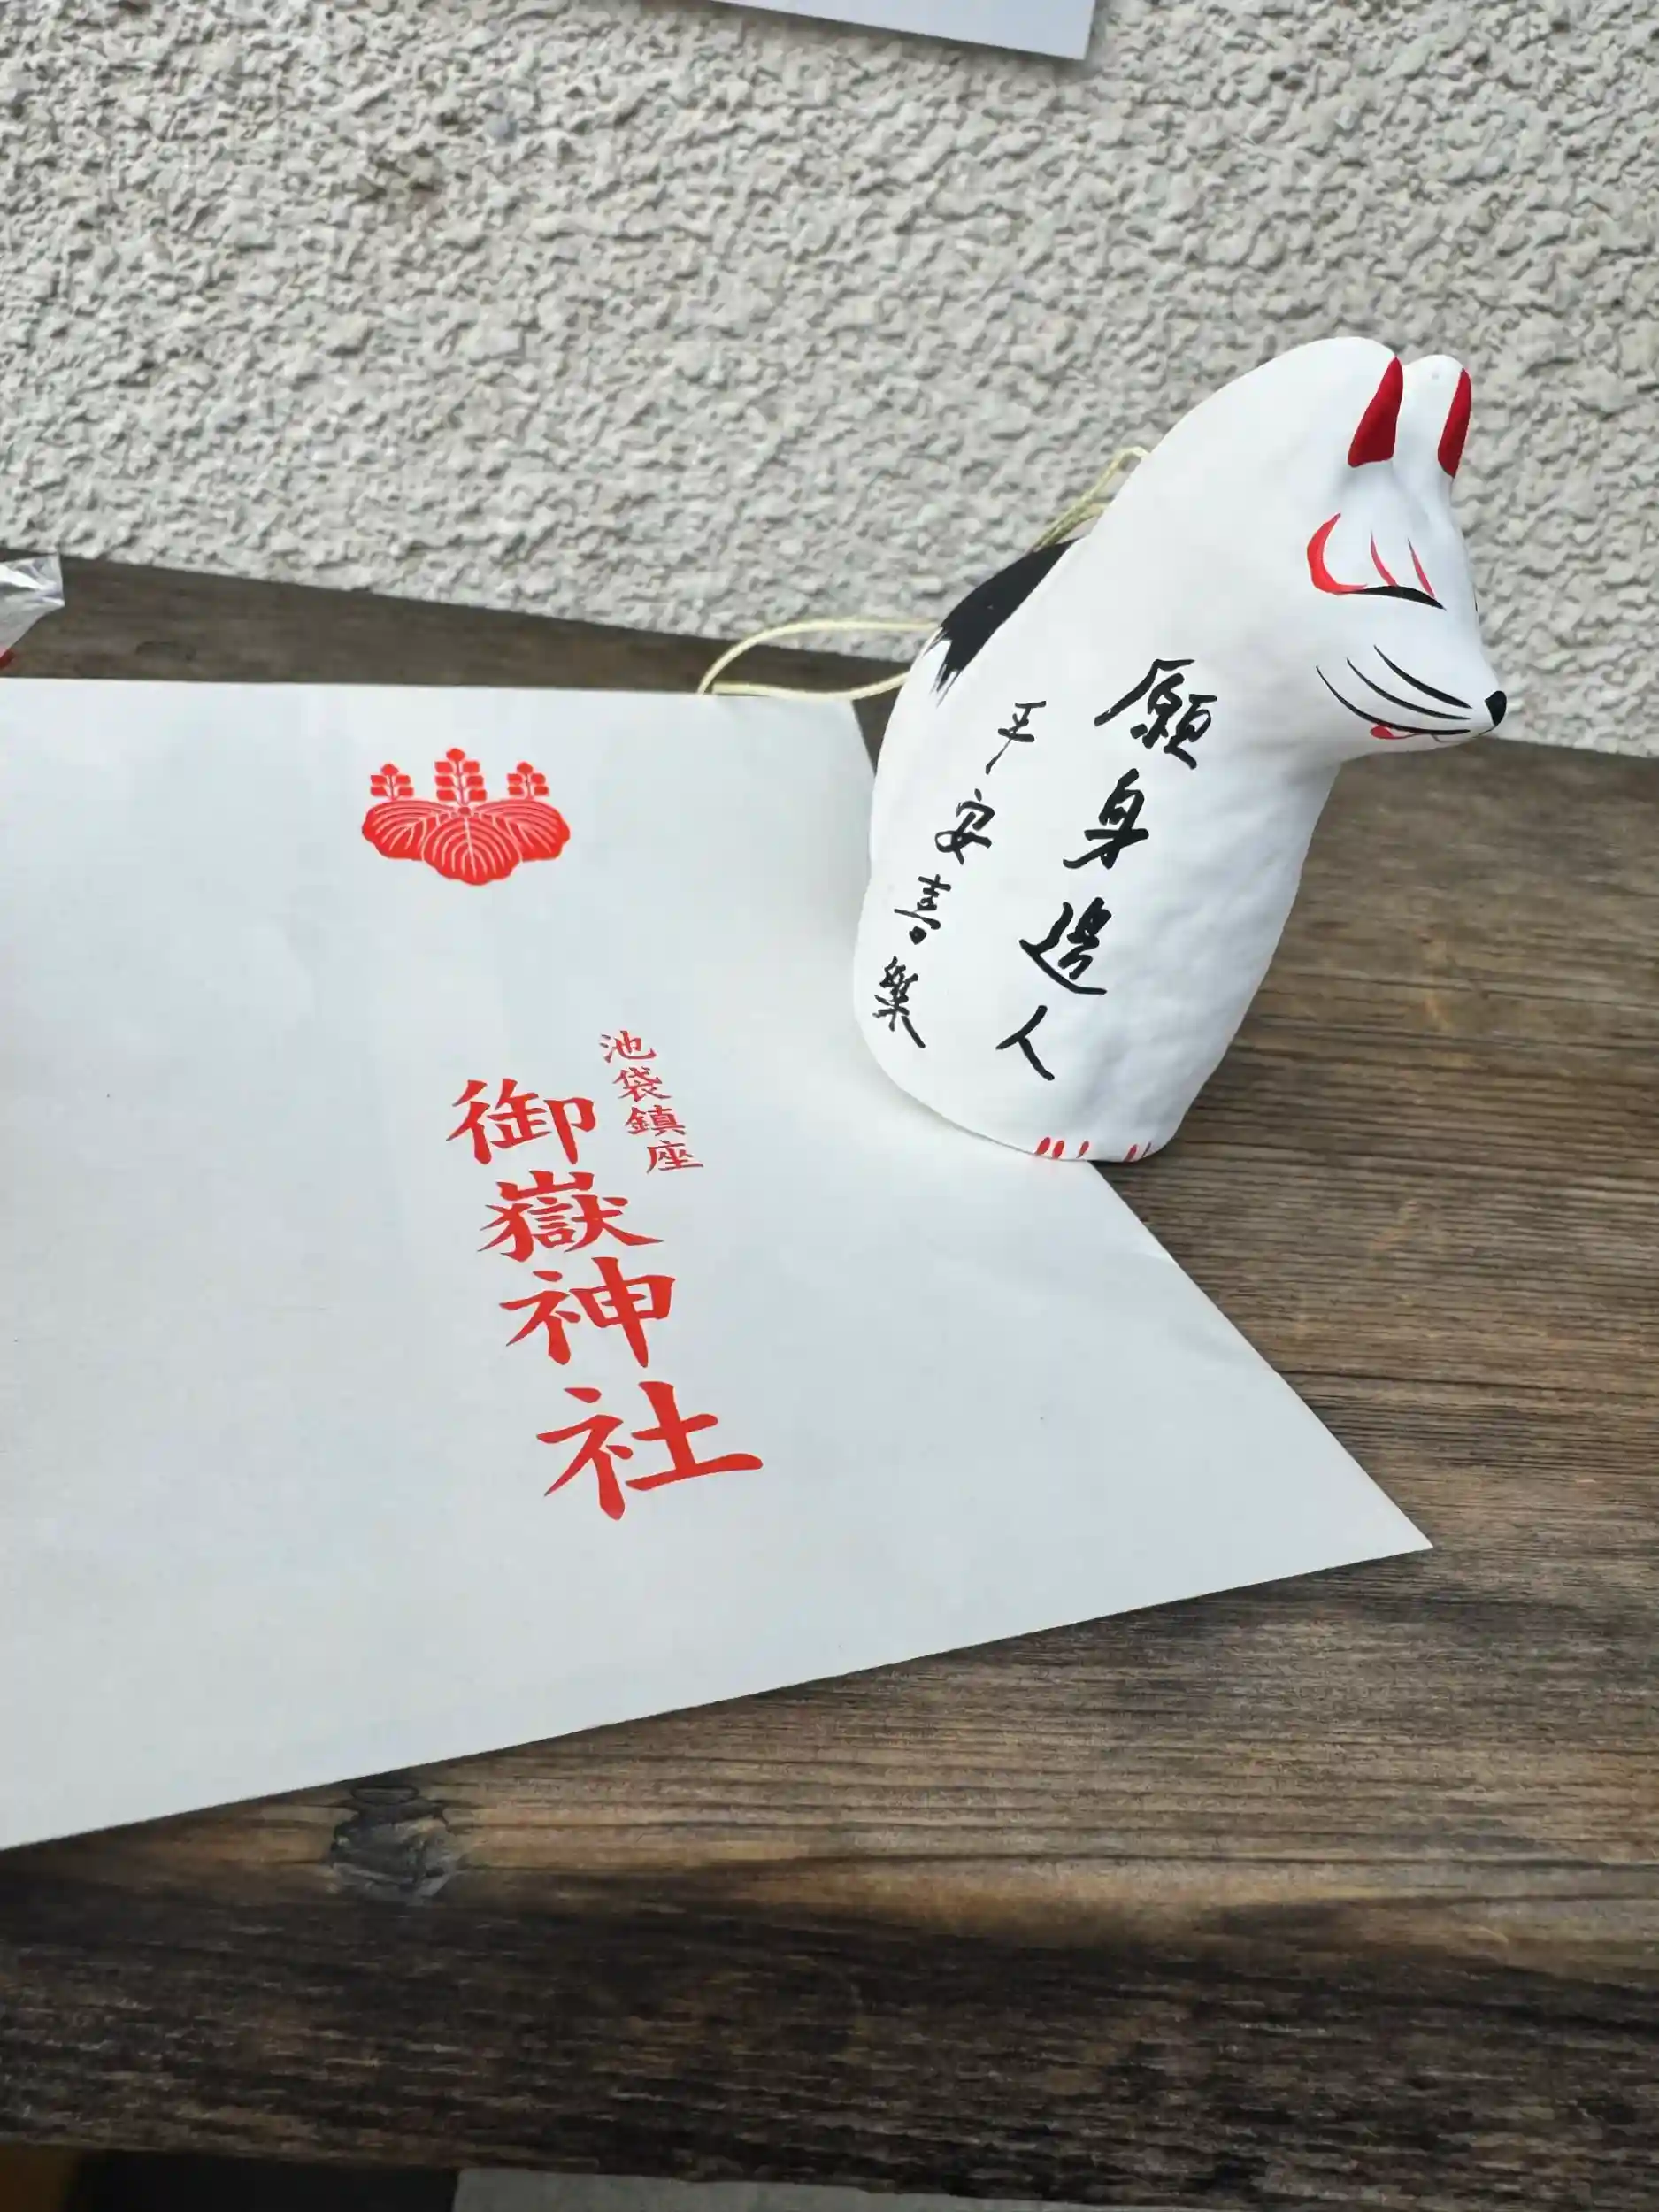 願身邊人
平安喜樂
池袋鎮座
御嶽神社